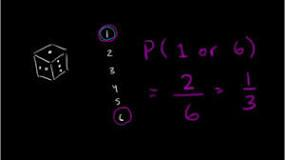 1
2
3
4
5
6
P(1 or 6)
= 2/6 = 1/3